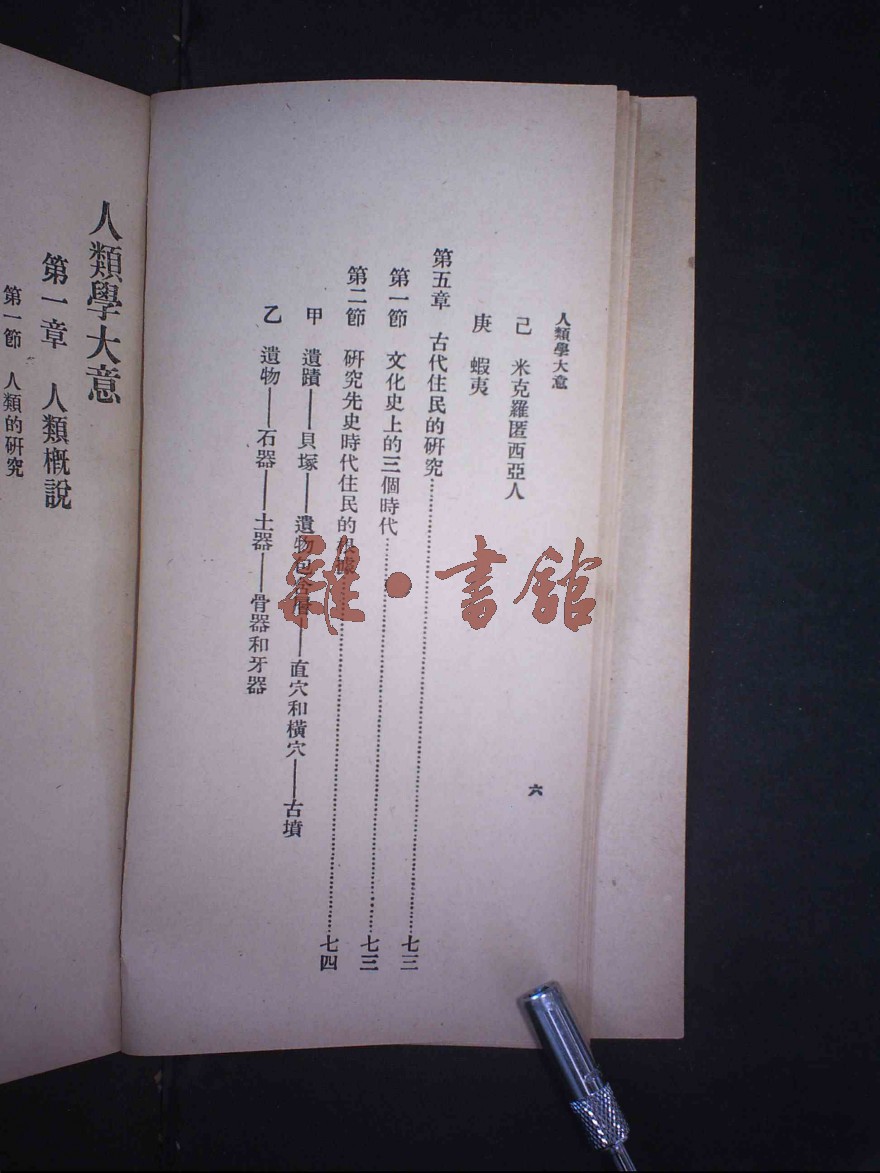 人類學大意
六
己 米克羅匿西亞人
庚 蝦夷
第五章 古代住民的研究……七三
第一節 文化史上的三個時代……七三
第二節 研究先史時代住民的……七四
甲 遺蹟——貝塚——遺物包含層——直穴和橫穴——古墳
乙 遺物——石器——土器——骨器和牙器
人類學大意
第一章 人類概說
第一節 人類的研究
雜·書館